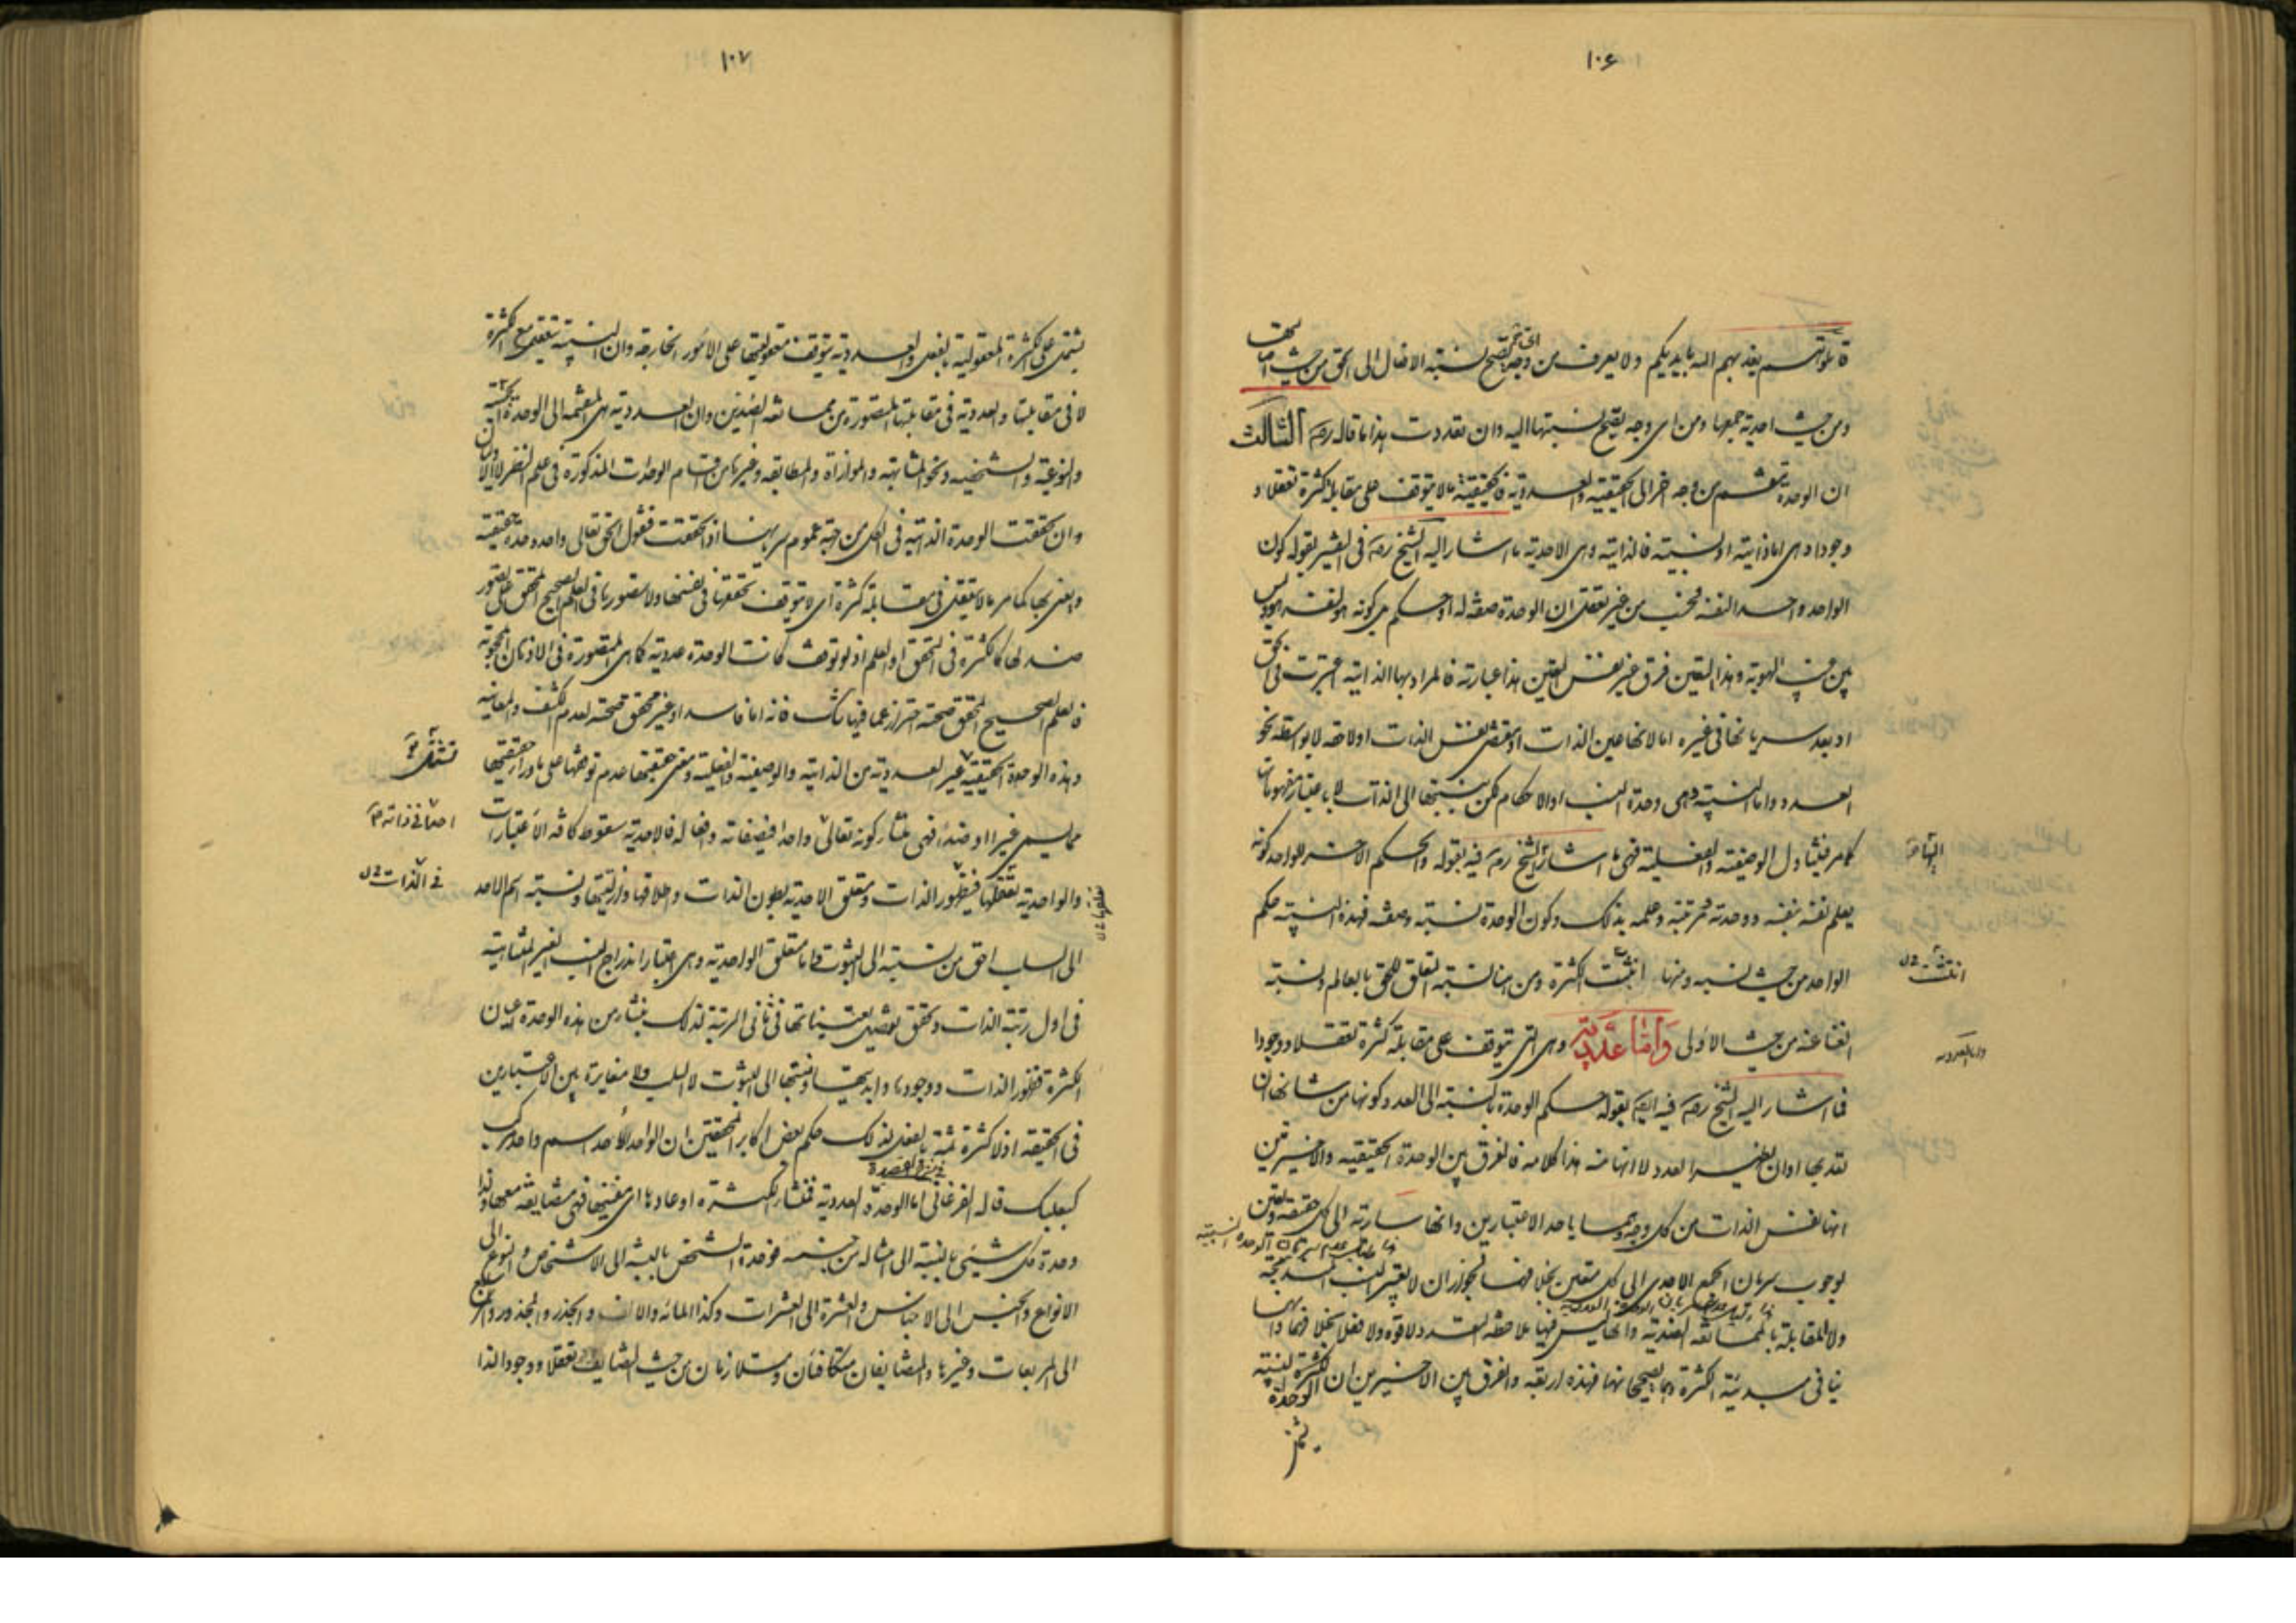 ١٠۶
قاتلوهم يعذبهم الله بايديكم ولا يعرف من وجه يصح نسبة الافعال الى الحق من حيث
ومن حيث احدية جمعها ومن اى وجه يصح نسبتها اليه وان تعددت هذا ما قاله رض الثالث
ان الوحدة تنقسم من وجه اخر الى الحقيقية والعددية فالحقيقية ما لا يتوقف على مقابلة كثرة تعقلا و
وجودا وهى اما ذاتية او نسبية فالذاتية وهى الاحدية ما اشار اليه الشيخ رض فى التفسير بقوله كون
الواحد واحدا لنفسه فحسب من غير تعقل ان الوحدة صفة له او حكم بل كونه هو لنفسه هو وليس
بين هذه الهوية وهذا التعين فرق غير نفس التعين هذا عبارته فالمراد بها الذاتية اعتبرت فى الحق
او بعد سريانها فى غيره اما لانها عين الذات او مقتضى نفس الذات اولاحقة لا بواسطة نحو
العدد واما النسبية وهى وحدة النسب او الاحكام لكن بنسبتها الى الذات لا باعتبار مفهوماتها
كما مر فيتناول الوصفية والفعلية فهى ما اشار الشيخ رض فيه بقوله والحكم الاخر للواحد كونه
يعلم نفسه بنفسه ووحدته ومرتبته وعلمه بذلك وكون الوحدة نسبة وصفة فهذه النسبة حكم
الواحد من حيث نسبه ومنها انبثت الكثرة ومن هنا نسبة تعلق الحق بالعالم ونسبة
الغنا عنه من حيث الاولى واما عددية وهى التى تتوقف على مقابلة كثرة تعقلا ووجودا
فما اشار اليه الشيخ رض فيه ايضا بقوله حكم الوحدة بالنسبة الى العدد كونها من شانها ان
تعد بها او ان تظهر العدد لا انها منه هذا كلامه فالفرق بين الوحدة الحقيقية والاخيرتين
انها نفس الذات من كل وجه وهما باحد الاعتبارين وانها سارية الى كل حقيقة وتعين
لوجوب سريان الجمع الاحدى الى كل متعين بخلافهما لجواز ان لا يعتبر النسب المندرجة
ولا المقابلة بالمماثلة الضدية وانها ليس فيها ملاحظة التعدد لا قوة ولا فعلا بخلافهما وانها
ينافى مبدئية الكثرة وهما يصححانها فهذه اربعة والفرق بين الاخيرين ان الكثرة النسبية
الوحدة
انتشت ن ل
واما العددية
١٠٧
يشتمل على الكثرة المعقولية بالفعل والعددية يتوقف معقوليتها على الامور الخارجة وان النسبية يتعقل مع الكثرة
لا فى مقابلتها والعددية فى مقابلتها المتصورة من مماثلة الضدين وان العددية هى المنقسمة الى الوحدة الجنسية
والنوعية والشخصية ونحو المشابهة والموازاة والمطابقة وغيرها من اقسام الوحدات المذكورة فى علم النظر لا الاولان
وان تحققت الوحدة الذاتية فى الكل من جهة عموم سريانها اذا تحققت فنقول الحق تعالى واحد وحدة حقيقية
واعنى بها كما مر ما لا يتعقل فى مقابلة كثرة اى لا يتوقف تحققها فى نفسها ولا تصورها فى العلم الصحيح المحقق على تصور
ضد لها كالكثرة فى التحقق او العلم اذ لو توقفت كانت الوحدة عددية كما هى المتصورة فى الاذهان المحجوبة
فالعلم الصحيح المحقق صحته احتراز عما فيها تلك فانه اما فاسد او غير محقق صحته لعدم الكشف والمعاينة
وهذه الوحدة الحقيقية غير العددية من الذاتية والوصفية والفعلية ومعنى حقيقيتها عدم توقفها على ما وراء حقيقتها
مما ليس غيرا او ضدا فهى منشأ كونه تعالى واحدا فى صفاته وافعاله فالاحدية سقوط كافة الاعتبارات
والواحدية تعقلها فبظهور الذات ومتعلق الاحدية بطون الذات واطلاقها وازليتها ونسبة اسم الاحد
الى السلب احق من نسبته الى الثبوت واما متعلق الواحدية وهى اعتبار اندراج النسب الغير المتناهية
فى اول رتبة الذات وتحقق تفصيل تعيناتها فى ثانى الرتبة لذلك ينشأ من هذه الوحدة اعيان
الكثرة فظهور الذات ووجودها وابديتها ونسبتها الى الثبوت لا السلب ولا مغايرة بين الاعتبارين
فى الحقيقة اذ لا كثرة ثمة بالفعل لذلك حكم بعض اكابر المحققين ان الواحد الاحد اسم واحد مركب
كبعلبك قاله الفرغانى اما الوحدة العددية فمنشأ الكثرة او عادها اى مفنيها فهى متضايفة معها وكذا
وحدة كل شيئ بالنسبة الى امثاله من جنسه فوحدة الشخص بالنسبة الى الاشخاص والنوع الى
الانواع والجنس الى الاجناس والعشرة الى العشرات وكذا المائة والالف والجذر والمجذور والمربع
الى المربعات وغيرها والمتضايفان متكافئان ومتلازمان من حيث التضايف تعقلا ووجودا لذا
فى الذات ن ل